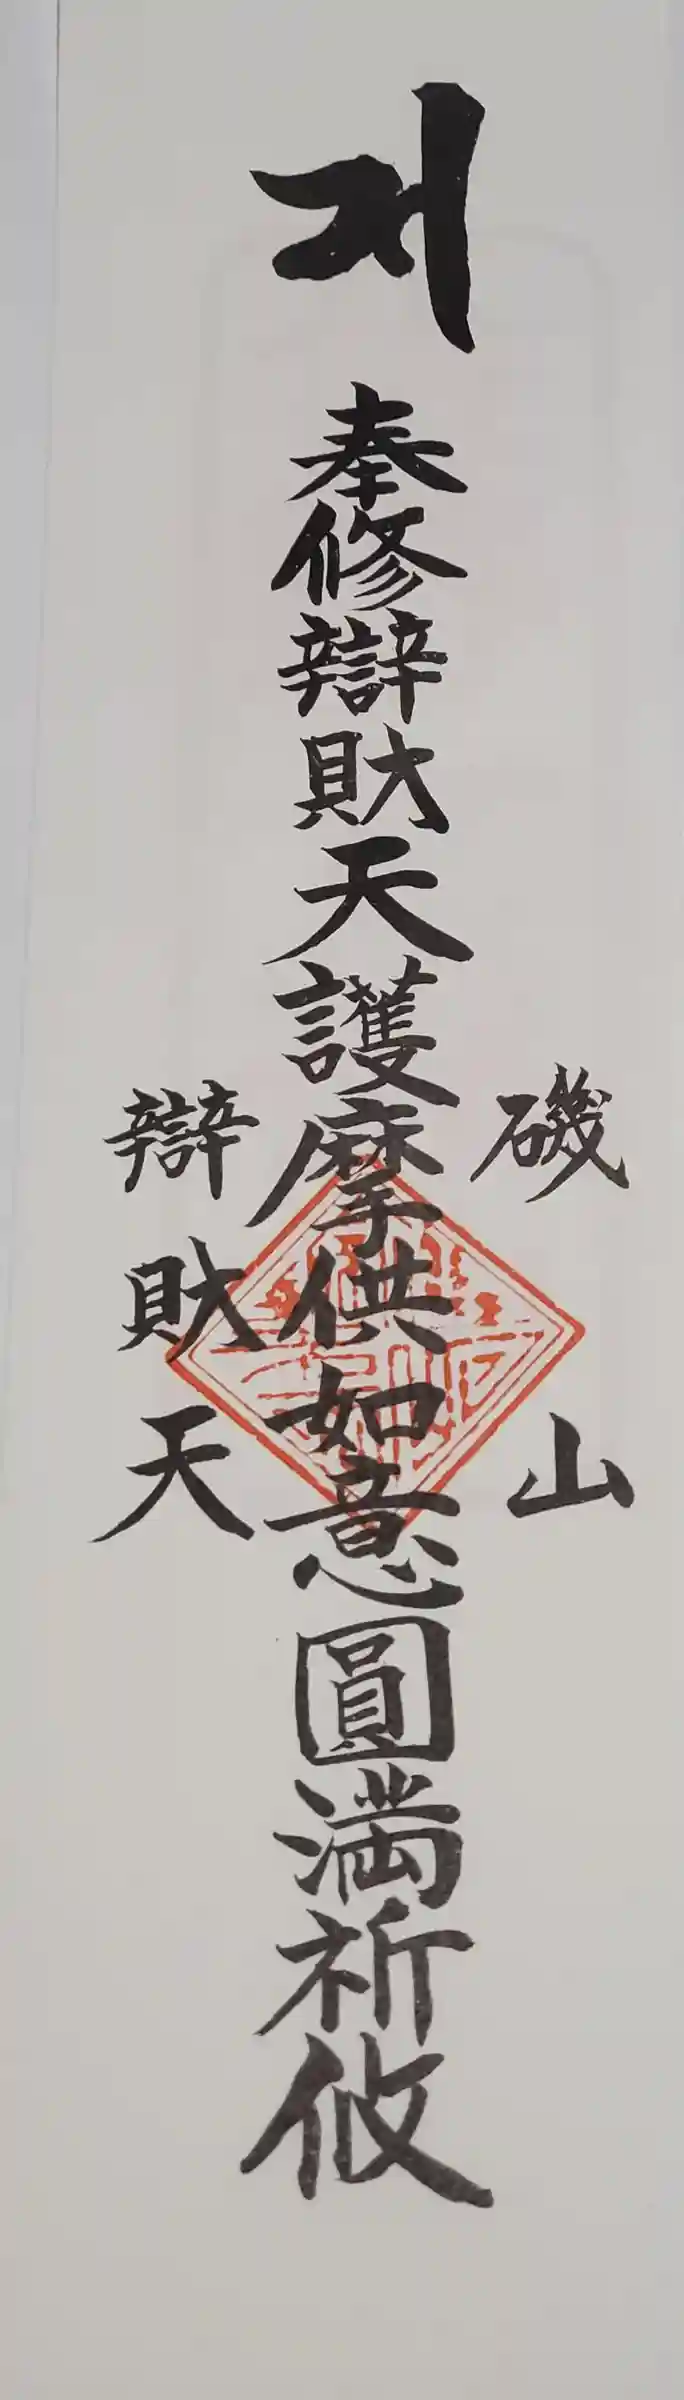 磯山
𑖭
奉修辯財天護摩供如意圓満祈攸
辯財天